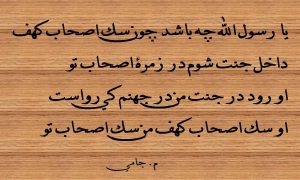 یا رسول الله چه باشد چون سگ اصحاب کهف
داخل جنت شوم در زمرۀ اصحاب تو
او رود در جنت من در جهنم کی رواست
او سگ اصحاب کهف من سگ اصحاب تو
م. جامی